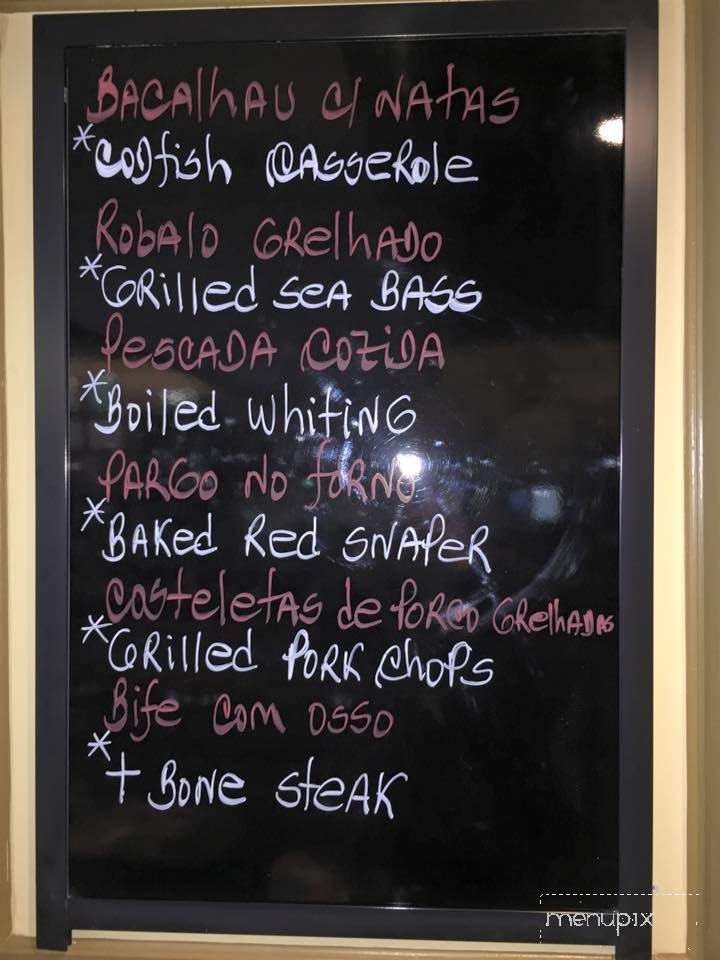 Bacalhau c/ Natas
*Codfish Casserole
Robalo Grelhado
*Grilled Sea Bass
Pescada Cozida
*Boiled Whiting
Pargo no forno
*Baked Red Snaper
Costeletas de Porco Grelhadas
*Grilled Pork Chops
Bife com osso
*T Bone Steak
menupix